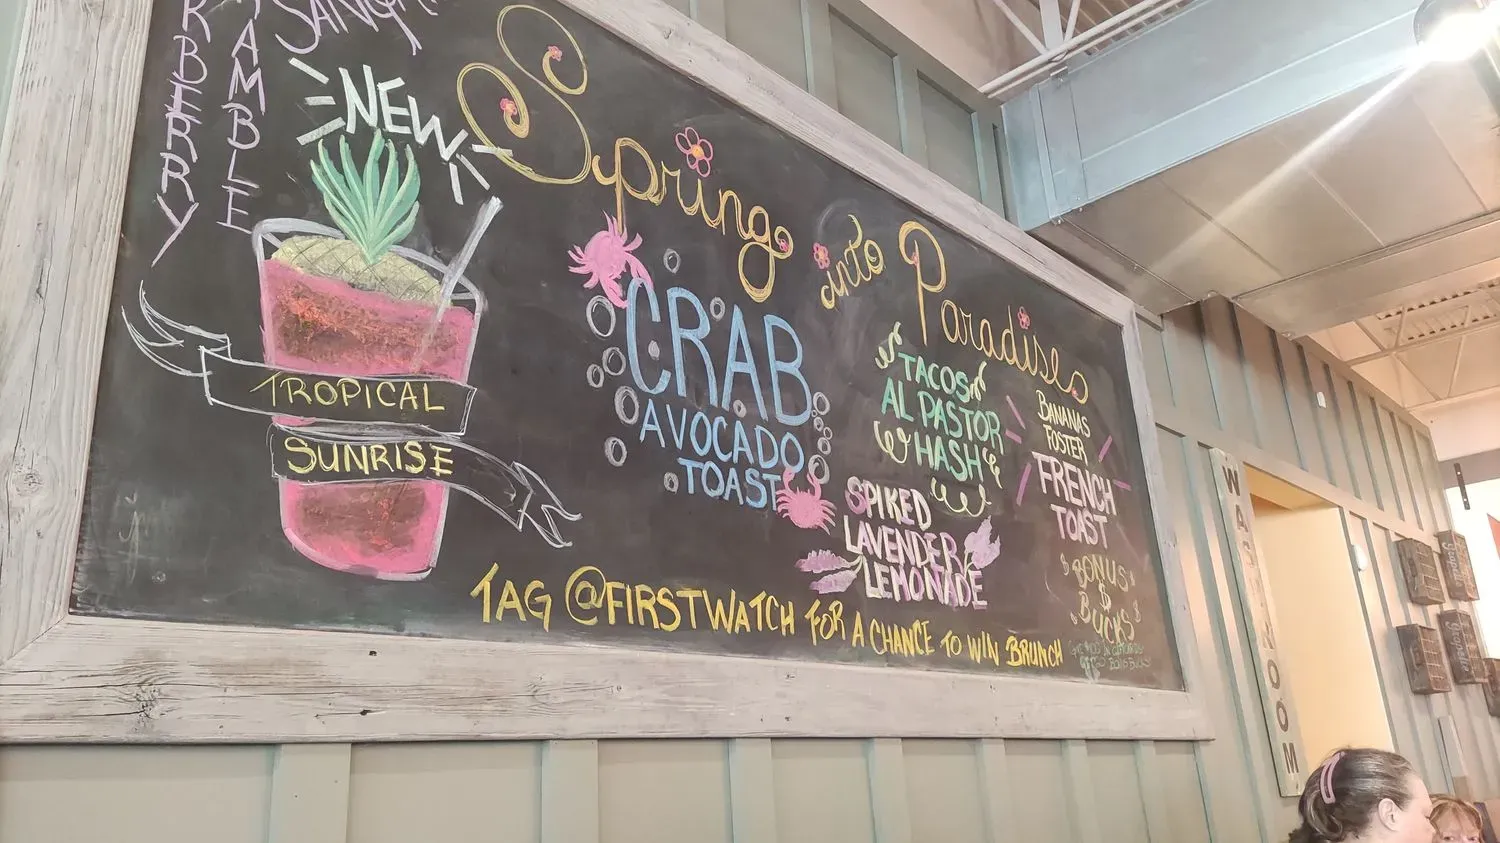 SANGRIA
BERRY
RAMBLE
NEW
TROPICAL
SUNRISE
Spring into Paradise
CRAB
AVOCADO
TOAST
TACOS
AL PASTOR
HASH
SPIKED
LAVENDER
LEMONADE
BANANAS
FOSTER
FRENCH
TOAST
BONUS
$
BUCKS
TAG @FIRSTWATCH FOR A CHANCE TO WIN BRUNCH
WASHROOM